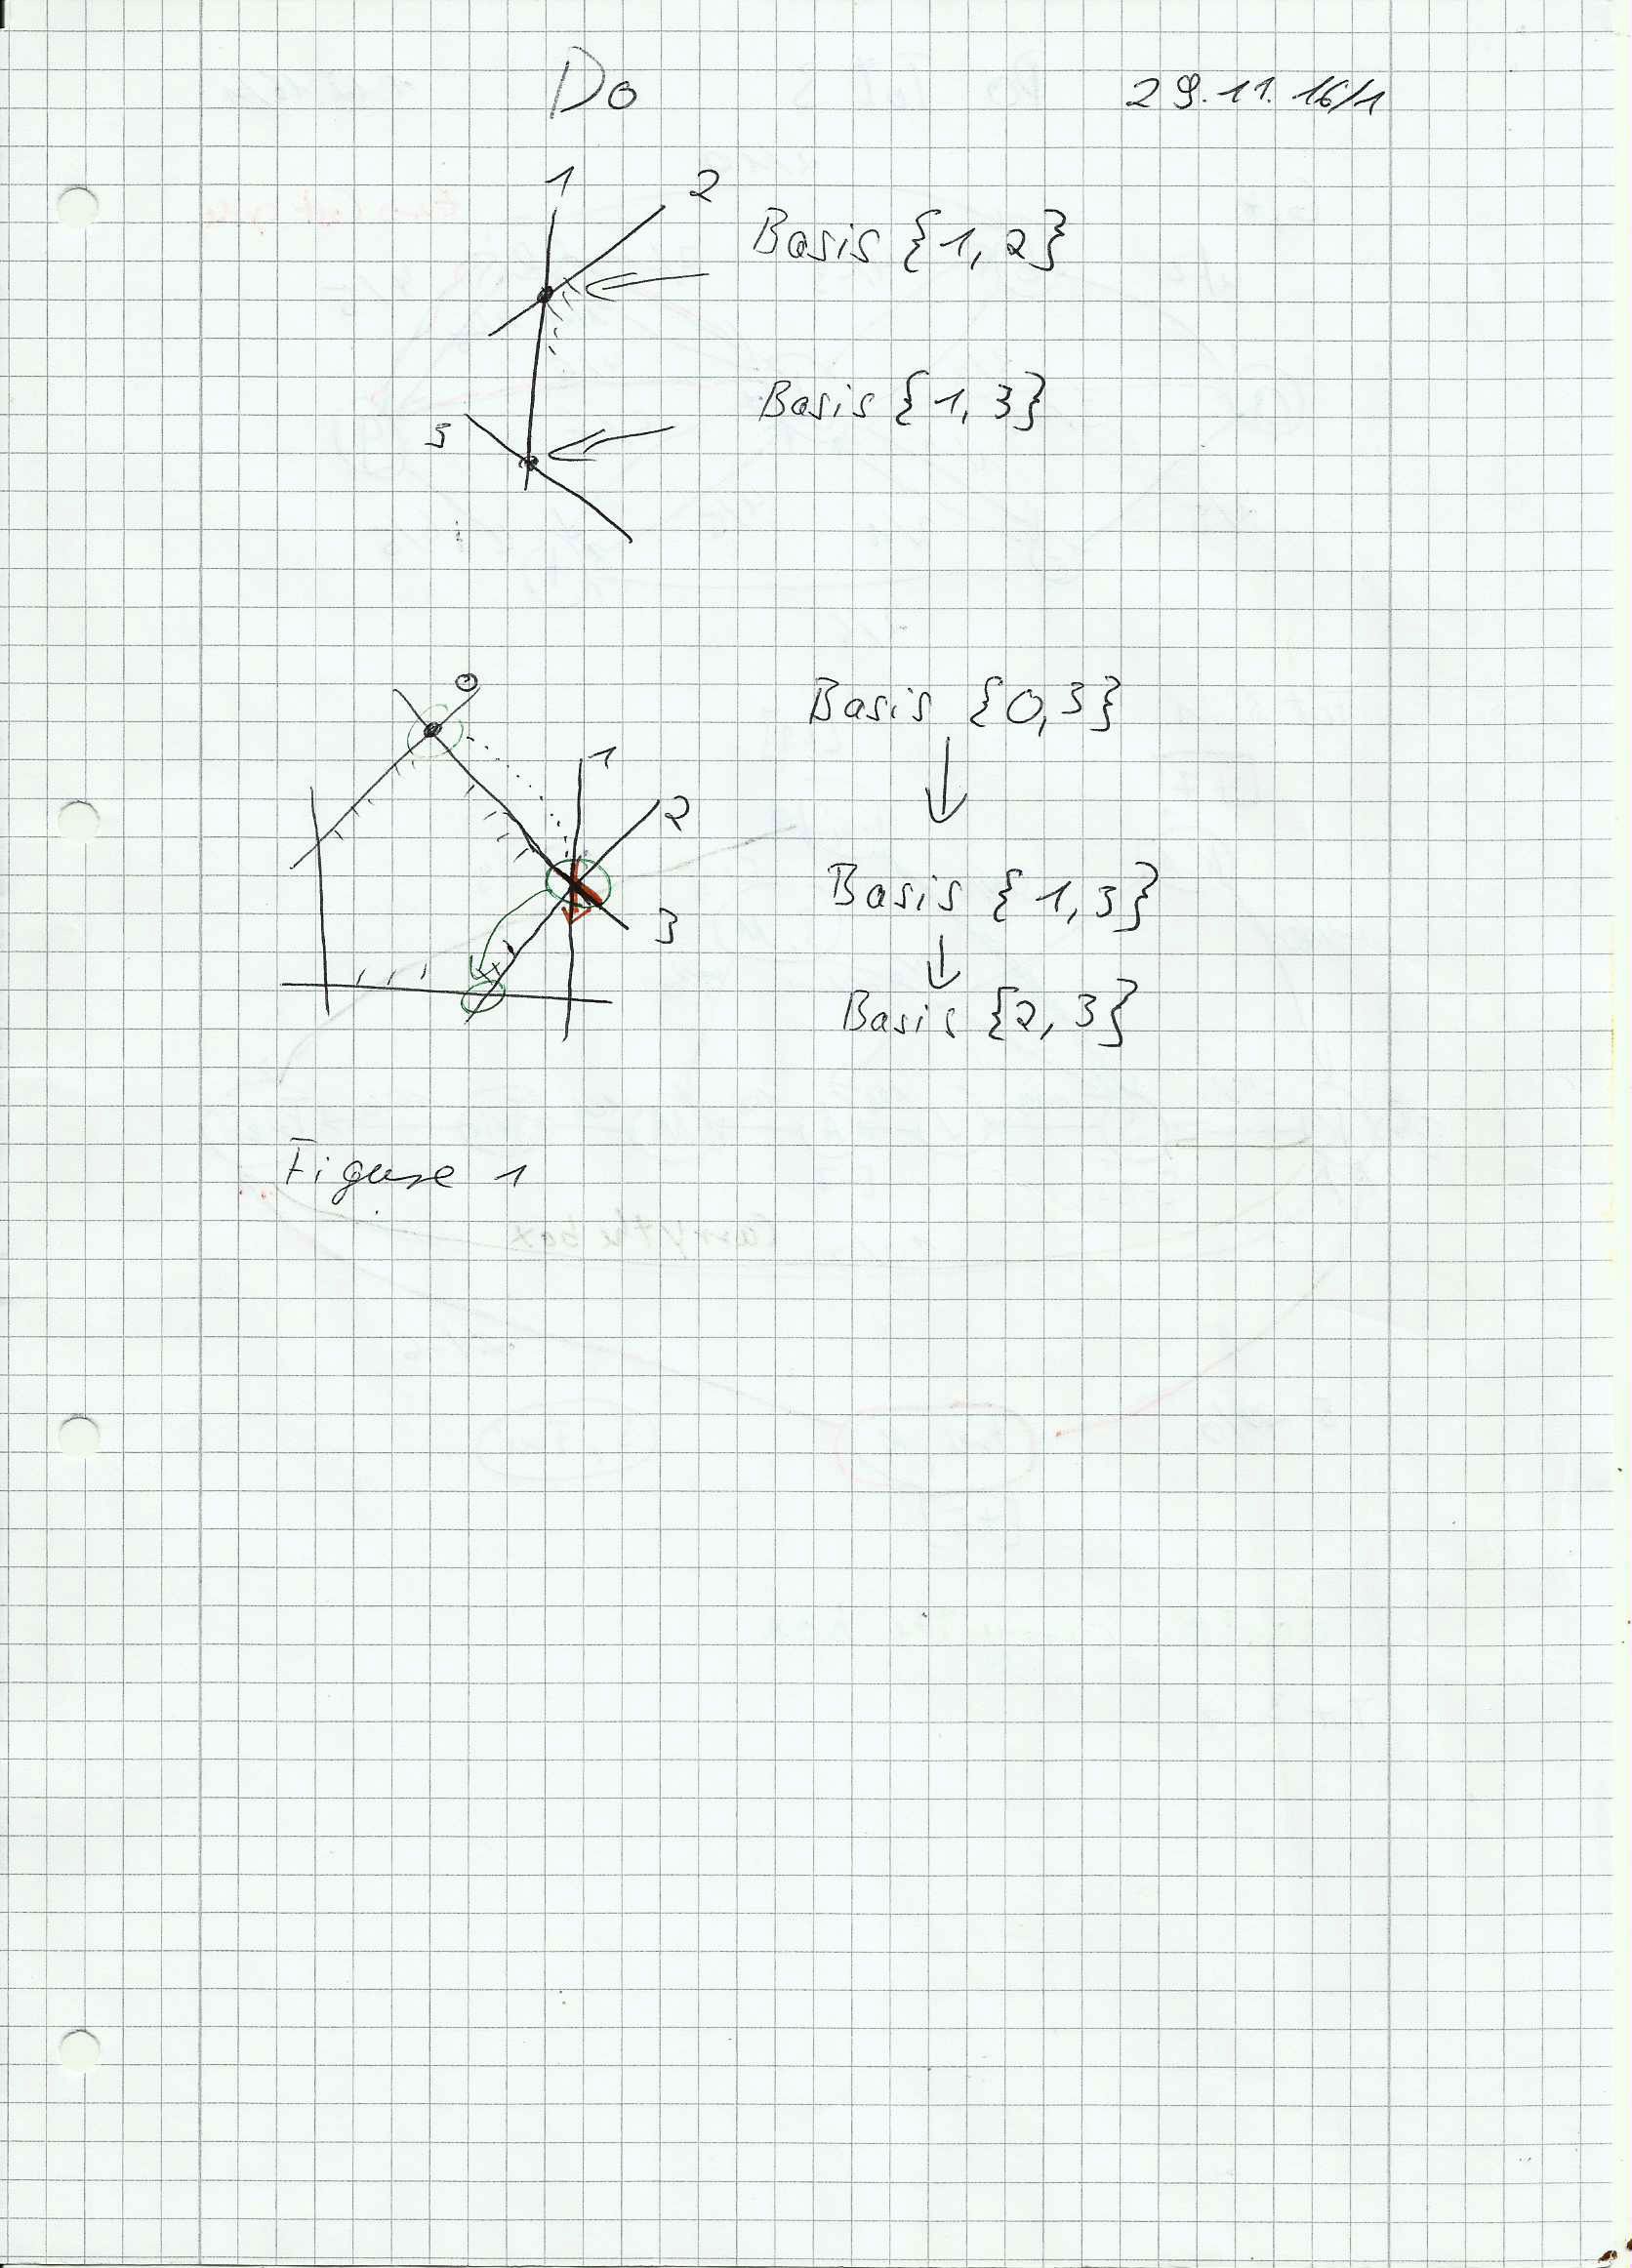 Do 29.11.16/1
1 2
Basis {1, 2}
Basis {1, 3}
3
0
Basis {0, 3}
1
2
Basis {1, 3}
3
Basis {2, 3}
Figure 1